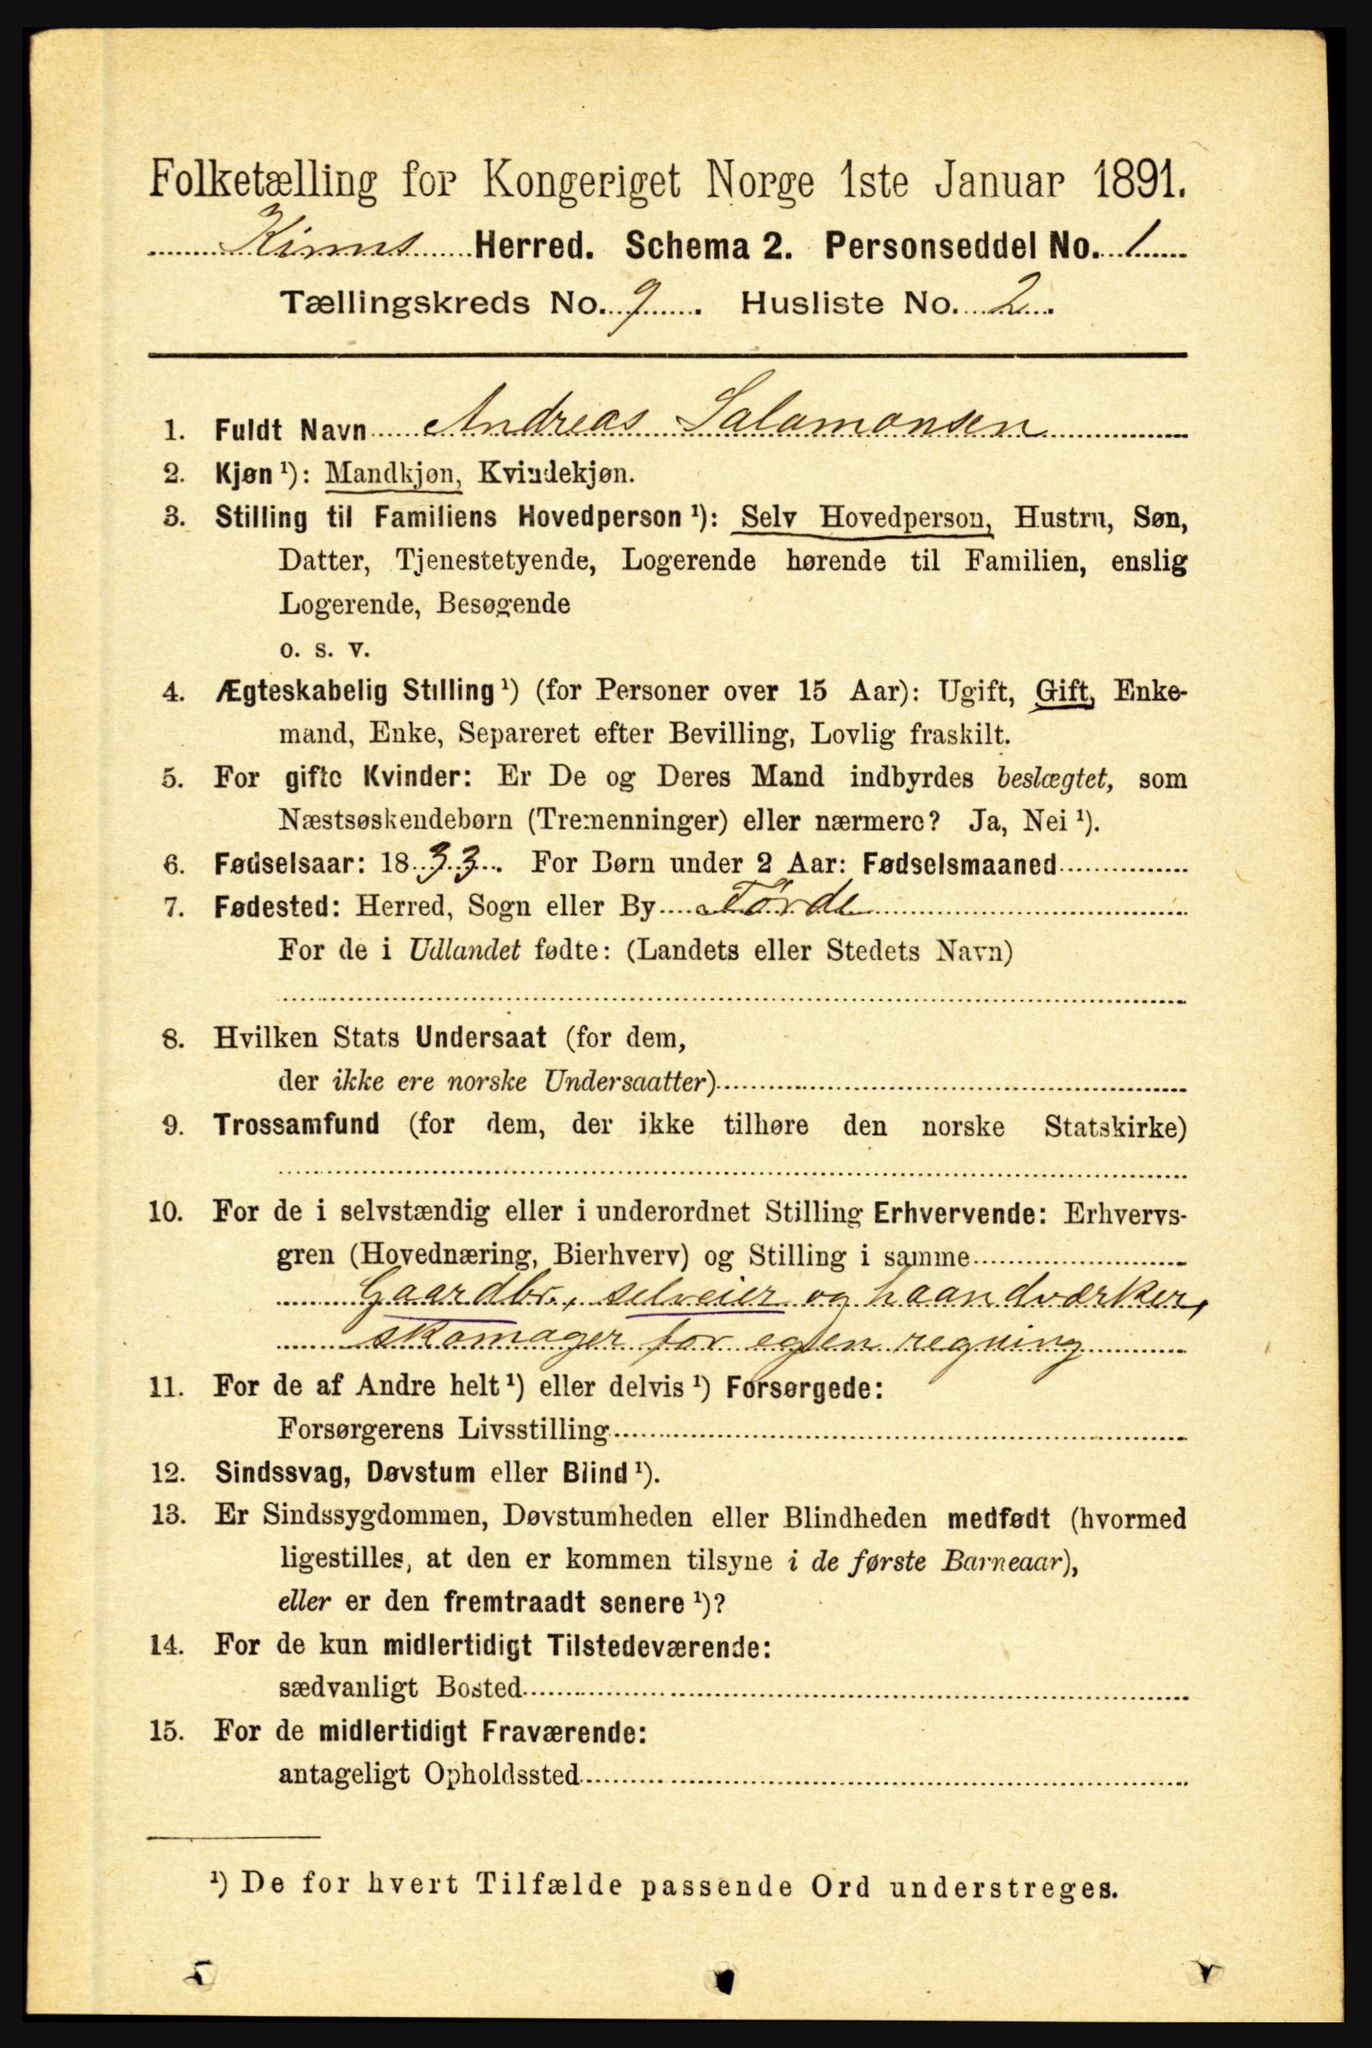 Folketælling for Kongeriget Norge 1ste Januar 1891.
Kinns Herred. Schema 2. Personseddel No. 1
Tællingskreds No. 9. Husliste No. 2.
1. Fuldt Navn Andreas Salamonsen
2. Kjøn ¹): Mandkjøn, Kvindekjøn.
3. Stilling til Familiens Hovedperson ¹): Selv Hovedperson, Hustru, Søn,
Datter, Tjenestetyende, Logerende hørende til Familien, enslig
Logerende, Besøgende
o. s. v.
4. Ægteskabelig Stilling ¹) (for Personer over 15 Aar): Ugift, Gift, Enke-
mand, Enke, Separeret efter Bevilling, Lovlig fraskilt.
5. For gifte Kvinder: Er De og Deres Mand indbyrdes beslægtet, som
Næstsøskendebørn (Tremenninger) eller nærmere? Ja, Nei ¹).
6. Fødselsaar: 1833. For Børn under 2 Aar: Fødselsmaaned
7. Fødested: Herred, Sogn eller By Förde
For de i Udlandet fødte: (Landets eller Stedets Navn)
8. Hvilken Stats Undersaat (for dem,
der ikke ere norske Undersaatter)
9. Trossamfund (for dem, der ikke tilhøre den norske Statskirke)
10. For de i selvstændig eller i underordnet Stilling Erhvervende: Erhvervs-
gren (Hovednæring, Bierhverv) og Stilling i samme
Gaardbr., selveier og haandværker,
skomager for egen regning
11. For de af Andre helt ¹) eller delvis ¹) Forsørgede:
Forsørgerens Livsstilling
12. Sindssvag, Døvstum eller Blind ¹).
13. Er Sindssygdommen, Døvstumheden eller Blindheden medfødt (hvormed
ligestilles, at den er kommen tilsyne i de første Barneaar),
eller er den fremtraadt senere ¹)?
14. For de kun midlertidigt Tilstedeværende:
sædvanligt Bosted
15. For de midlertidigt Fraværende:
antageligt Opholdssted
¹) De for hvert Tilfælde passende Ord understreges.